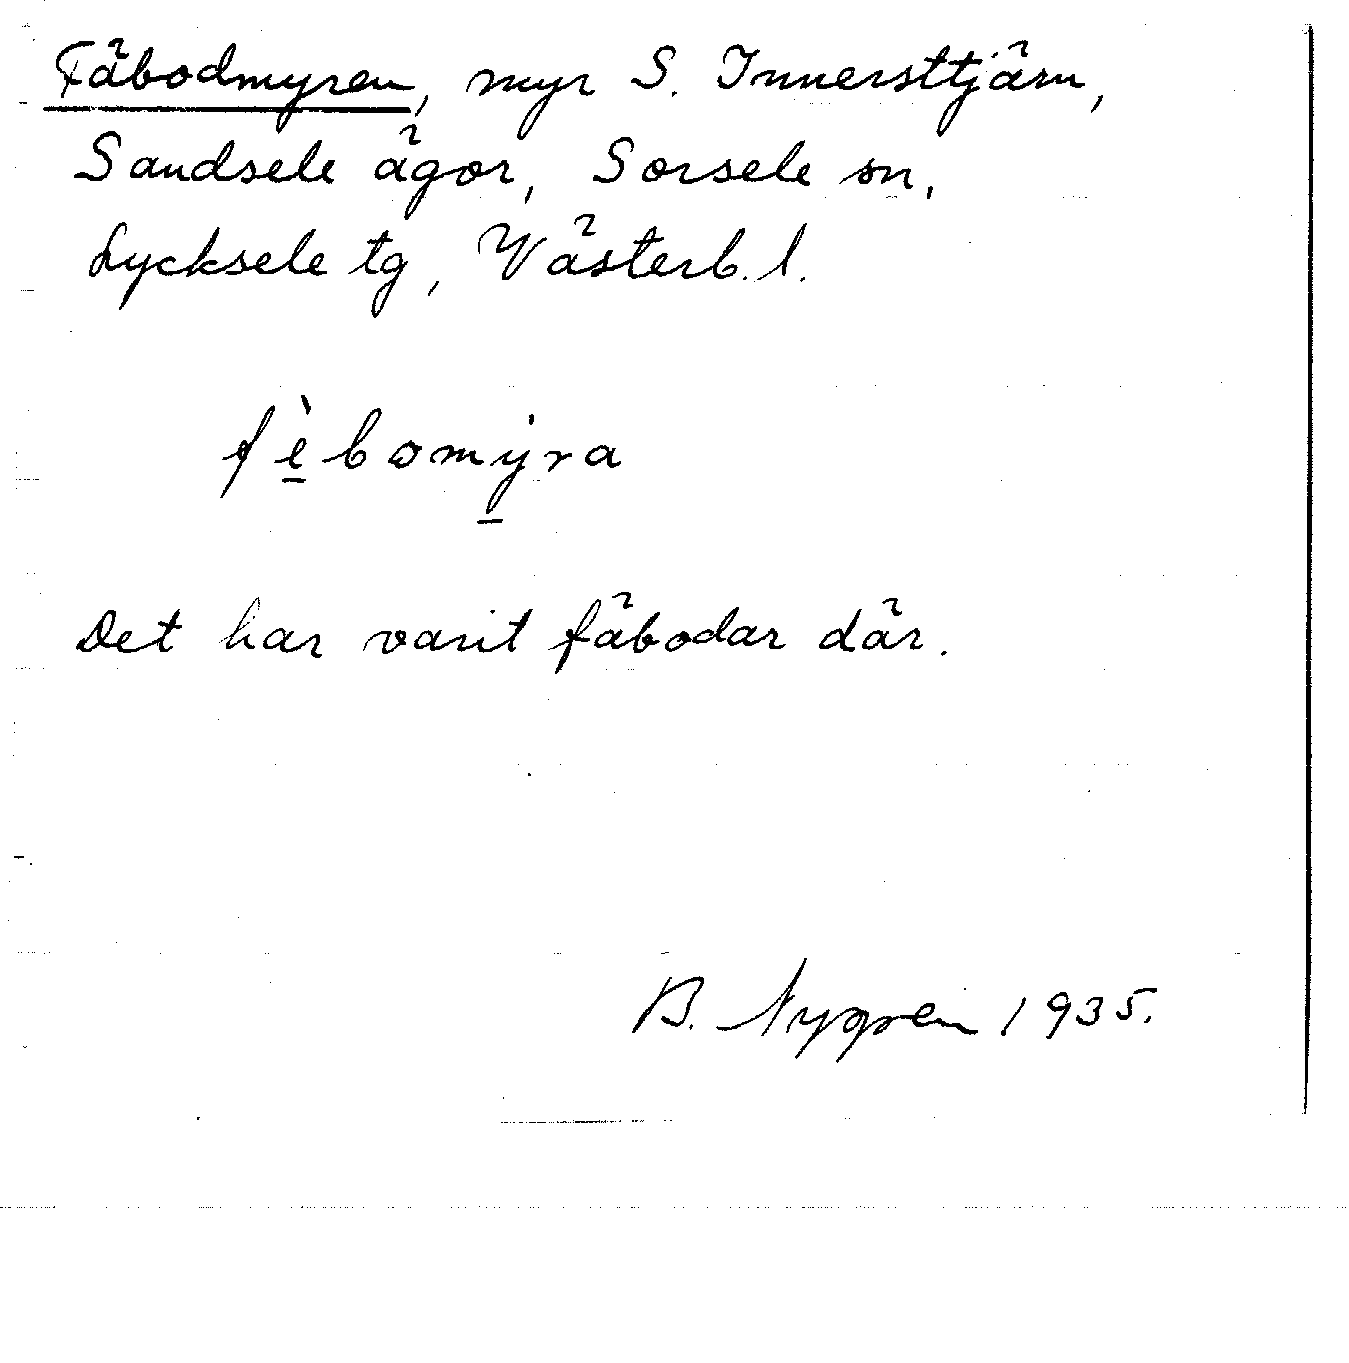 Fäbodmyren, myr S. Innersttjärn,
Sandsele ägor, Sorsele sn,
Lycksele tg, Västerb. l.
fèbomýra
Det har varit fäbodar där.
B. Nygren 1935.